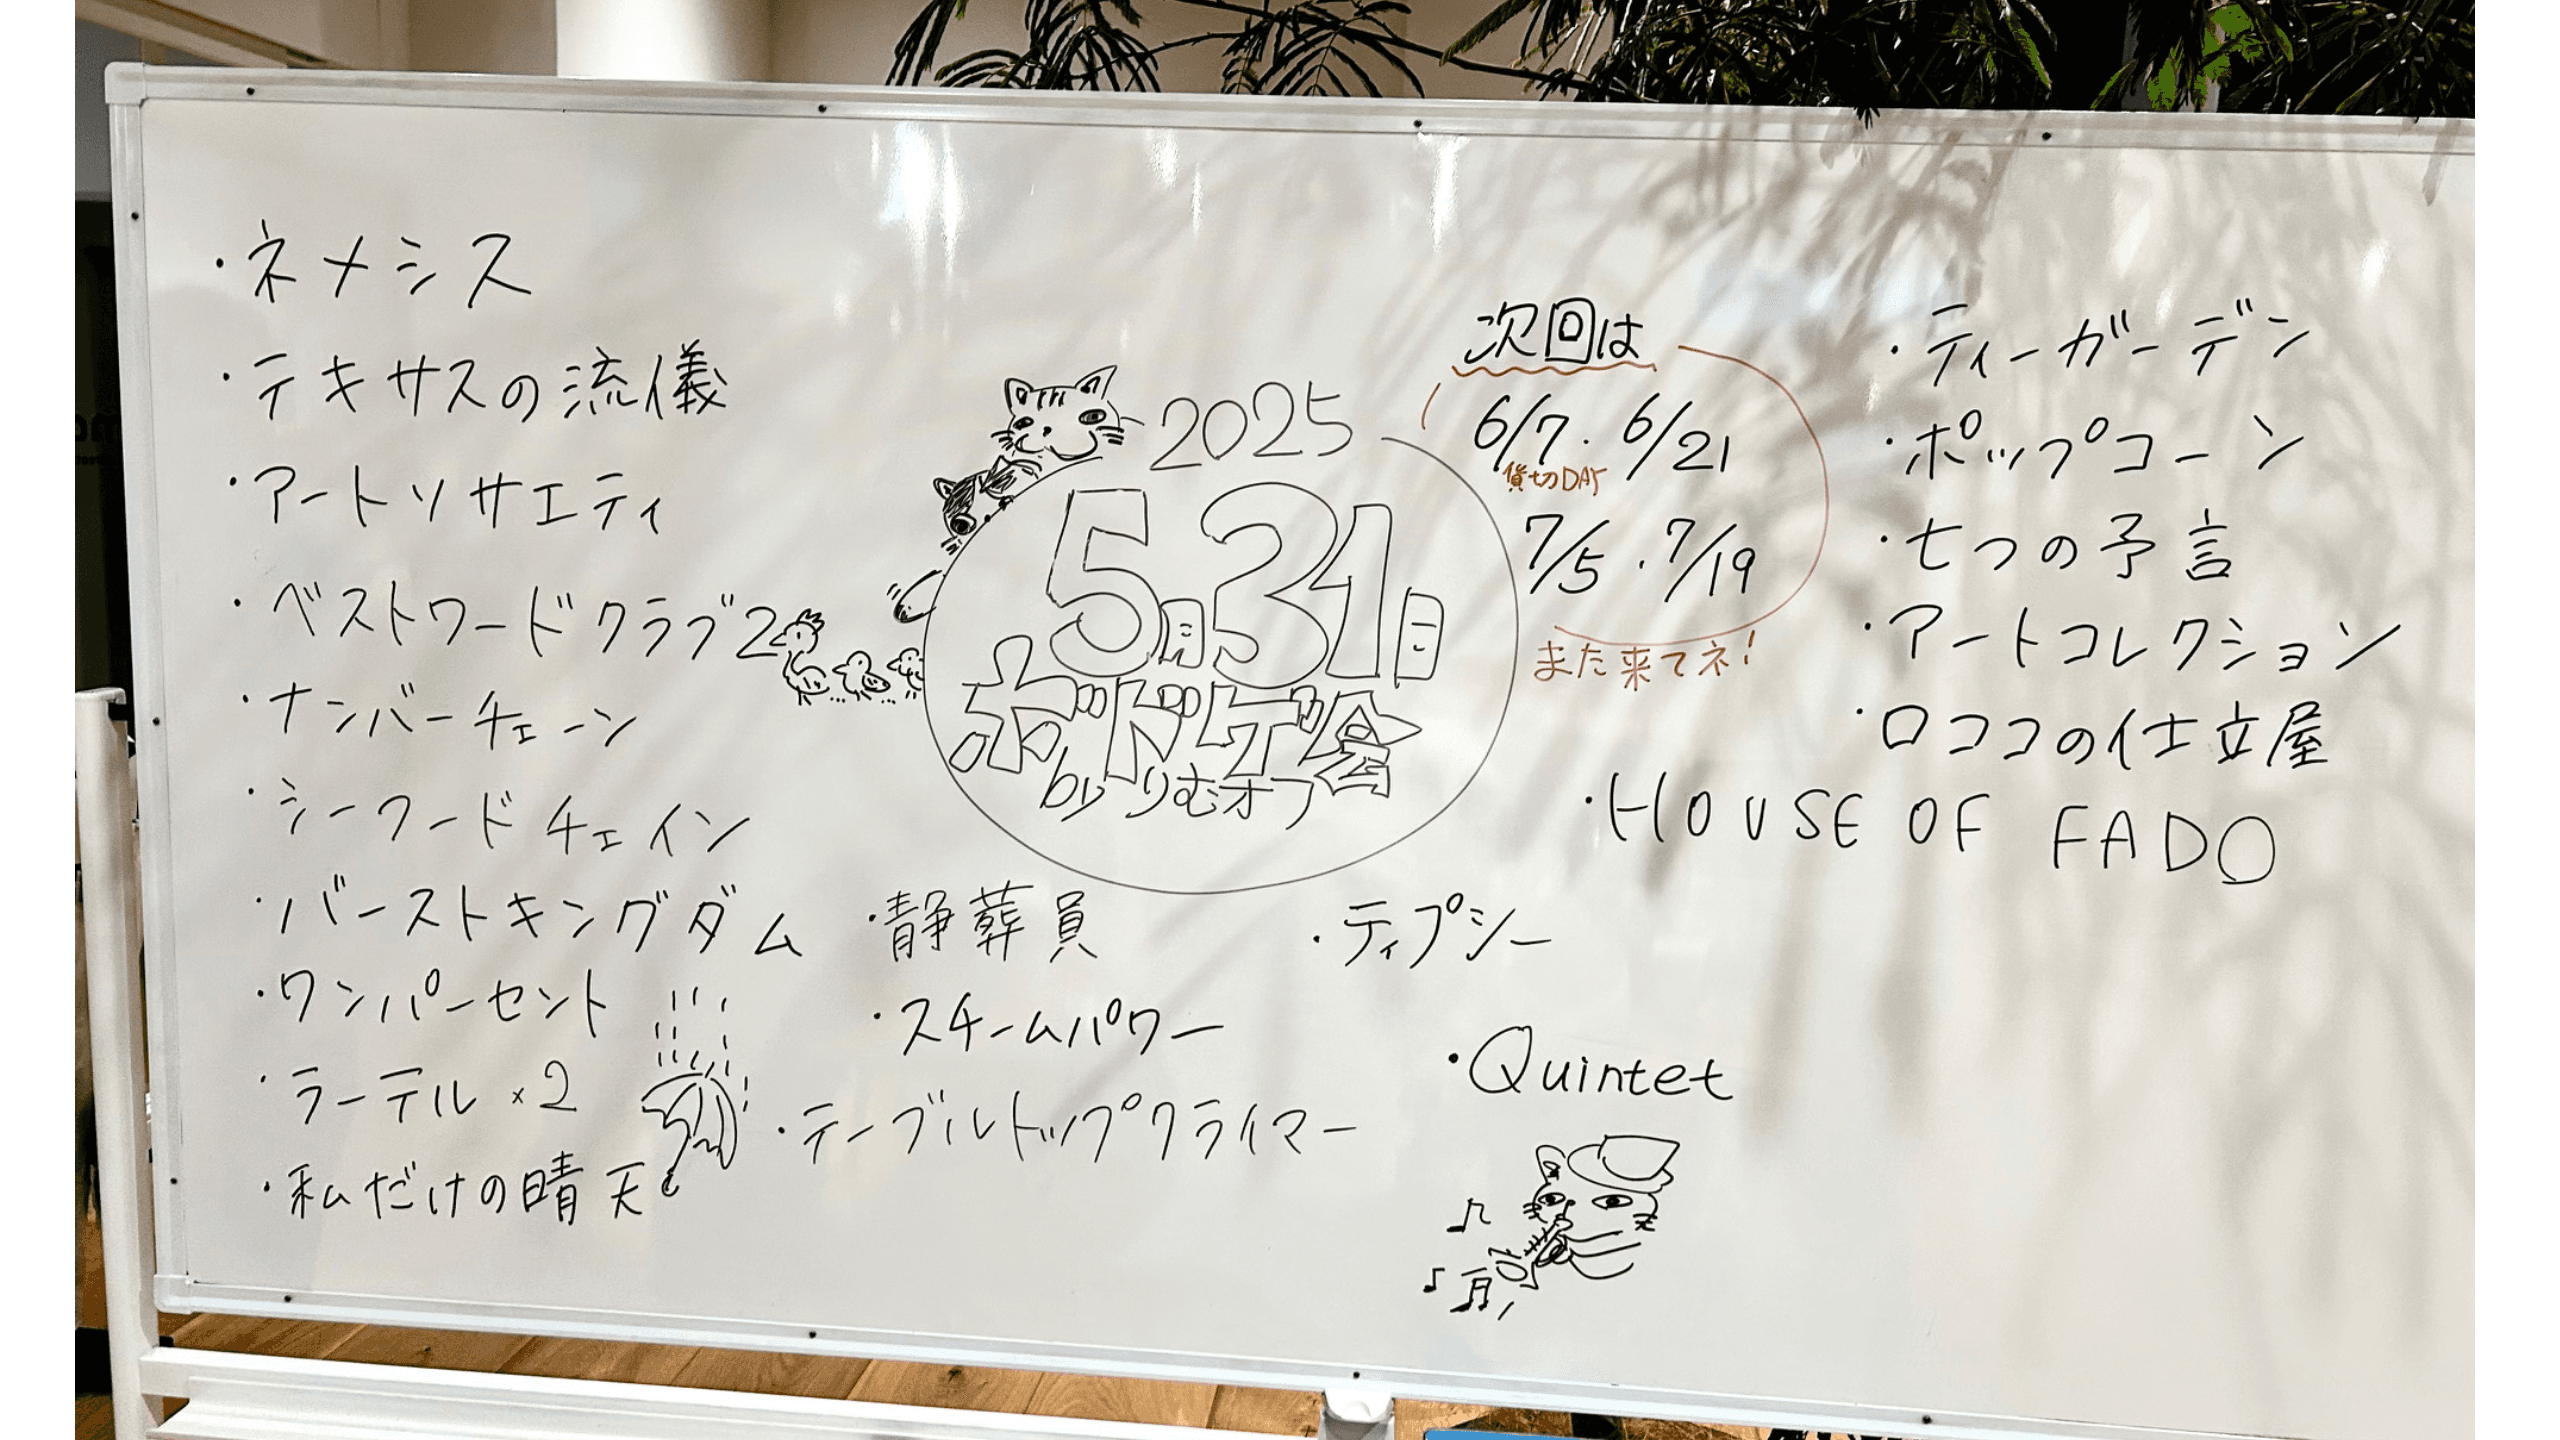 ・ネメシス
・テキサスの流儀
・アートソサエティ
・ベストワードクラブ2
・ナンバーチェーン
・シーフードチェイン
・バーストキングダム
・ワンパーセント
・ラーテル×2
・私だけの晴天
2025
5月31日
ボドゲ会
by りむオフ
・静葬員
・スチームパワー
・テーブルトップクライマー
・ティプシー
・Quintet
次回は
6/7・6/21
貸切DAY
7/5・7/19
また来てネ!
・ティーガーデン
・ポップコーン
・七つの予言
・アートコレクション
・ロココの仕立屋
・HOUSE OF FADO